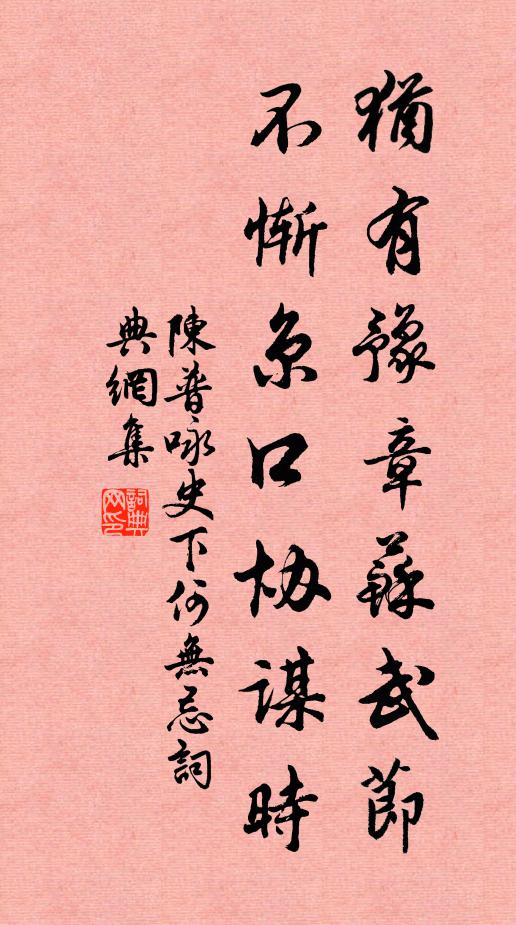 猶有豫章蘇武節
不慚京口協謀時
陳普咏史下何無忌詞
典網集
詞典网印